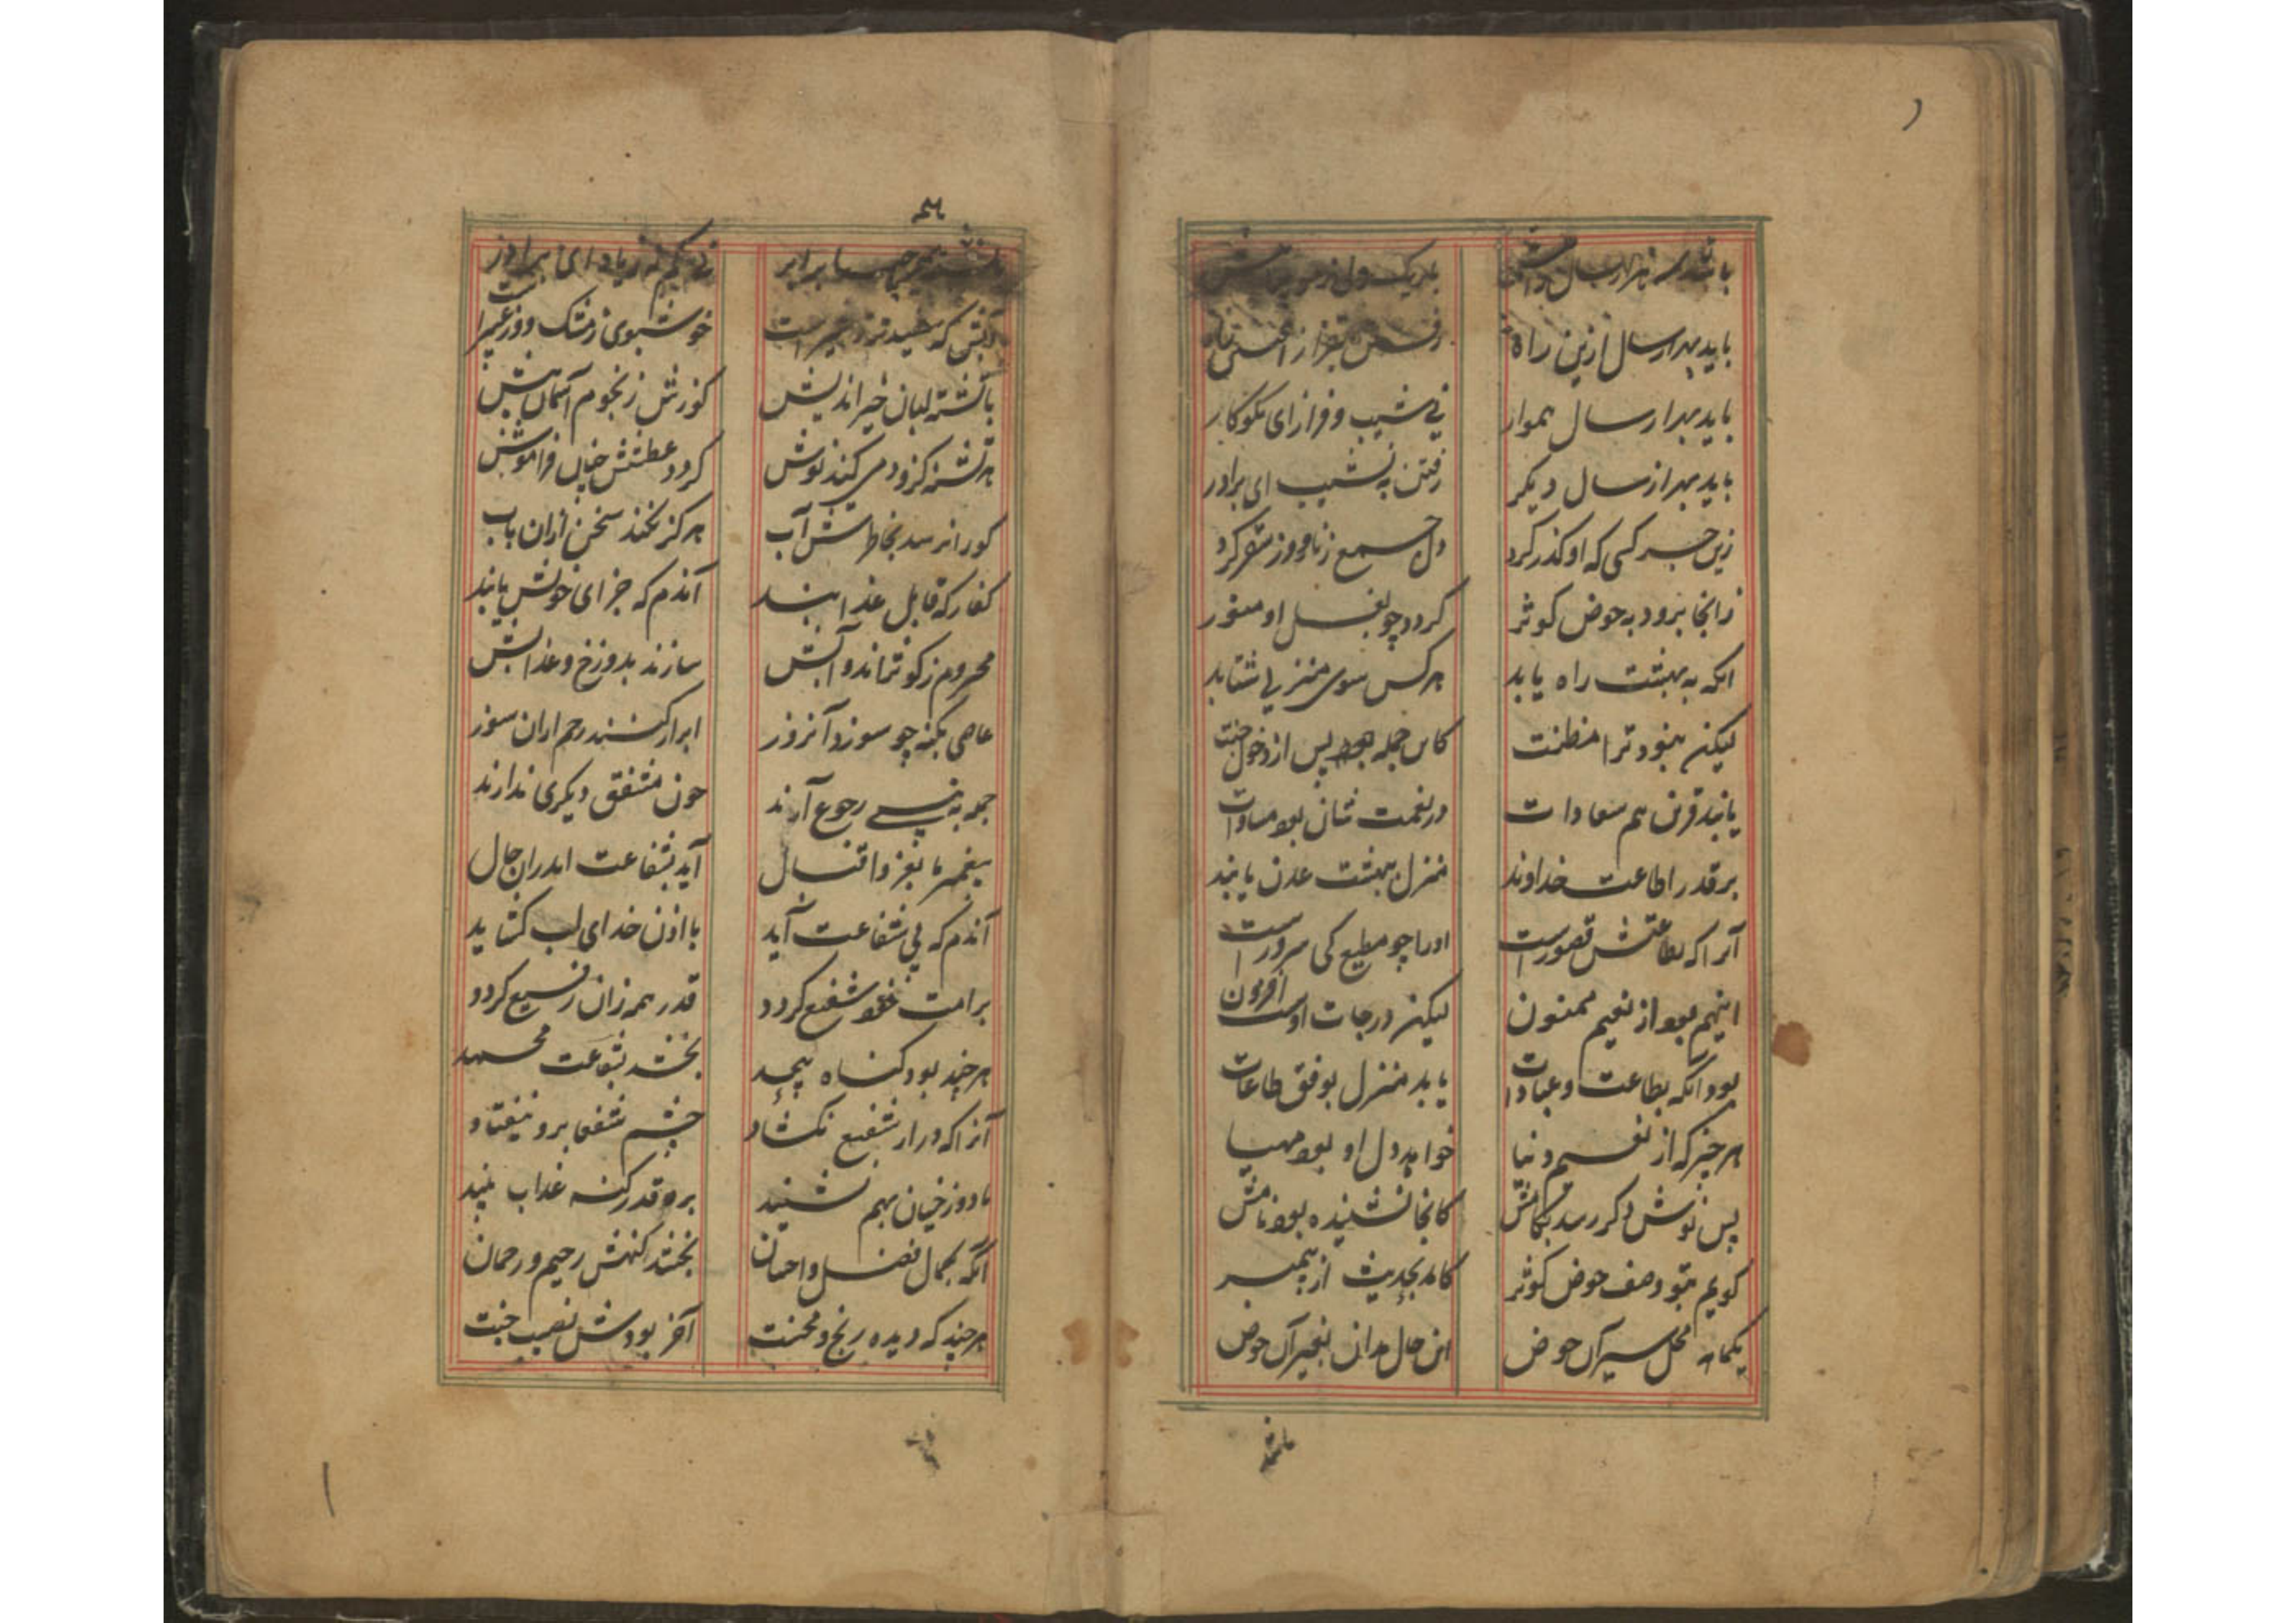 باشد سه هزار سال
باریک
باید بهزار سال ازین راه
رفتن بفراز
باید بهزار سال هموار
نی شیب و فراز ای نکوکار
باید بهزار سال دیگر
رفتن به نشیب ای برادر
زین جسر کسی که او گذر کرد
دل جمع ز نار و از سقر کرد
زانجا برود به حوض کوثر
گردد چو بغسل او منور
انکه به بهشت راه یابد
هر کس سوی منزلی شتابد
لیکن نبود ترا مظنت
کاین جمله بود پس از دخول جنت
یابند قرین هم سعادات
در نعمت شان بود مساوات
بر قدر اطاعت خداوند
منزل به بهشت عدن یابند
آنرا که بطاعتش قصورست
او را چو مطیع کی سرورست
اینهم بود از نعیم ممنون
لیکن درجات اوست افزون
بود انکه بطاعت و عبادات
یابد منزل بوفق طاعات
هر چیز که از نعیم دنیا
خواهد دل او بود مهیا
پس نوش دگر رسد بکامش
کانجا نشنیده بود نامش
گویم بتو وصف حوض کوثر
کامد بحدیث از پیمبر
یکماهه محل سیر آن حوض
این حال بدان بغیر آن حوض
باشد
برابر
زیاد ای برادر
آبش که سفیدتر ز شیر است
خوشبوی ز مشک وز عبیر است
با تشنه لبان خیر اندیش
کوزش ز نجوم آسمان بیش
هر تشنه کزو دمی کند نوش
گردد عطشش چنان فراموش
کو را نرسد بخاطرش آب
هرگز نکند سخن ازان باب
کفار که قابل عذابند
آندم که جزای خویش یابند
محروم ز کوثراند و آبش
سازند بدوزخ و عذابش
عاصی بگنه چو سوزد آنروز
ابرار کنند رحم ازان سوز
جمله به نبی رجوع آرند
چون مشفق دیگری ندارند
پیغمبر ما بعز و اقبال
آید بشفاعت اندران حال
آندم که پی شفاعت آید
با اذن خدای لب گشاید
بر امت خود شفیع گردد
قدر همه زان رفیع گردد
هر چند بود گناه بیحد
بخشد بشفاعت محمد
آنرا که در از شفیع نگشاد
چشم شفعا برو نیفتاد
با دوزخیان بهم نشیند
بر قدر گنه عذاب بیند
آنگه بکمال فضل و احسان
بخشد گنهش رحیم و رحمان
هر چند که دیده رنج و محنت
آخر بودش نصیب جنت